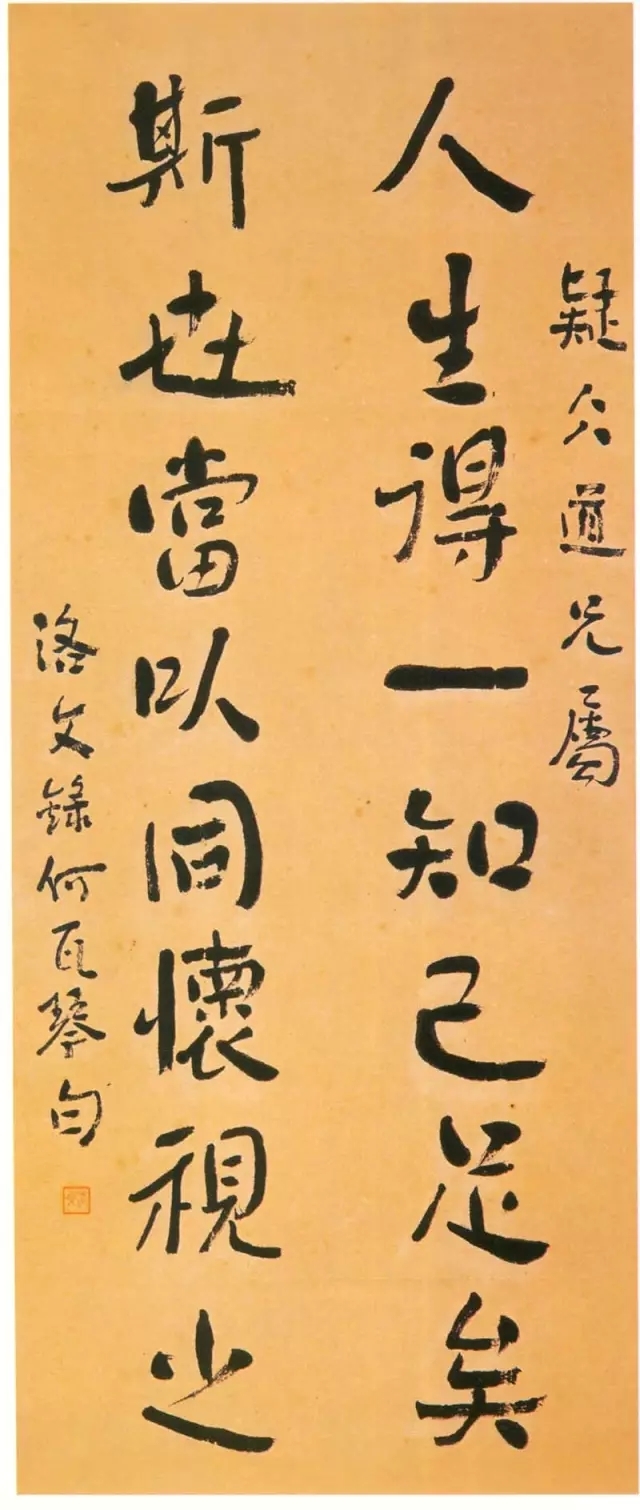 疑仌道兄屬
人生得一知己足矣
斯世當以同懷視之
洛文錄何瓦琴句